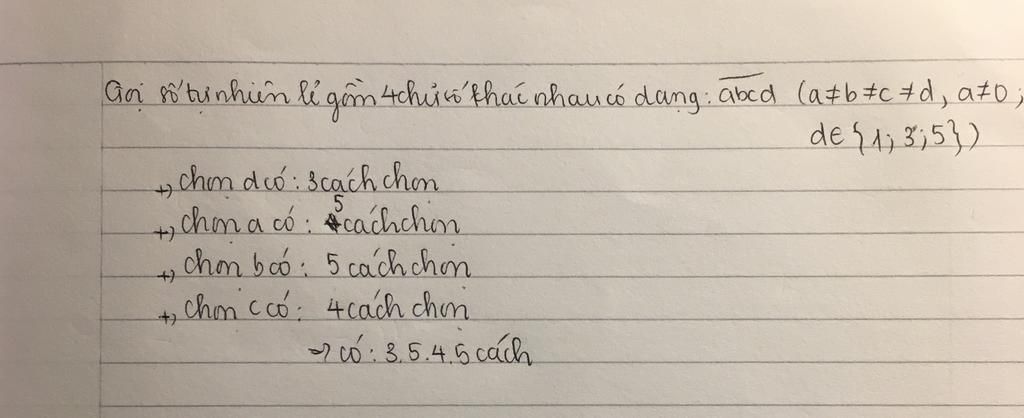 Gọi số tự nhiên lẻ gồm 4 chữ số khác nhau có dạng: abcd (a≠b≠c≠d, a≠0;
d∈{1;3;5})
+, chọn d có: 3 cách chọn
+, chọn a có: 5 cách chọn
+, chọn b có: 5 cách chọn
+, chọn c có: 4 cách chọn
→ có: 3.5.4.5 cách